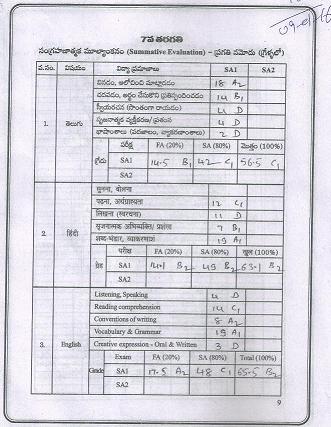 09-01-16
7వ తరగతి
సంగ్రహణాత్మక మూల్యాంకనం (Summative Evaluation) – ప్రగతి నమోదు (గ్రేళ్ళలో)
వ.సం. విషయం విద్యా ప్రమాణాలు SA1 SA2
వినడం, ఆలోచించి మాట్లాడడం 18 A2
చదవడం, అర్థం చేసుకొని ప్రతిస్పందించడం 14 B1
స్వీయరచన (సొంతంగా రాయడం) 4 D
సృజనాత్మక వ్యక్తీకరణ/ ప్రశంస 4 D
1. తెలుగు భాషాంశాలు (పదజాలం, వ్యాకరణాంశాలు) 2 D
పరీక్ష FA (20%) SA (80%) మొత్తం (100%)
గ్రేడు SA1 14.5 B1 42 C1 56.5 C1
SA2
सुनना, बोलना
पढ़ना, अर्थग्राह्यता 12 C1
लिखना (स्वरचना) 11 D
सृजनात्मक अभिव्यक्ति/ प्रशंसा 7 B1
2. हिंदी शब्द-भंडार, व्याकरणांश 19 A1
परीक्षा FA (20%) SA (80%) कुल (100%)
ग्रेड SA1 14.1 B2 49 B2 63.1 B2
SA2
Listening, Speaking 4 D
Reading comprehension 14 C1
Conventions of writing 8 A2
Vocabulary & Grammar 19 A1
3. English Creative expression - Oral & Written 3 D
Exam FA (20%) SA (80%) Total (100%)
Grade SA1 17.5 A2 48 C1 65.5 B2
SA2
9